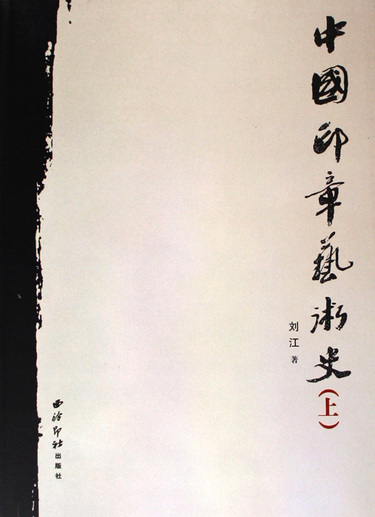 中國印章藝術史(上)
刘江 著
西泠印社出版社